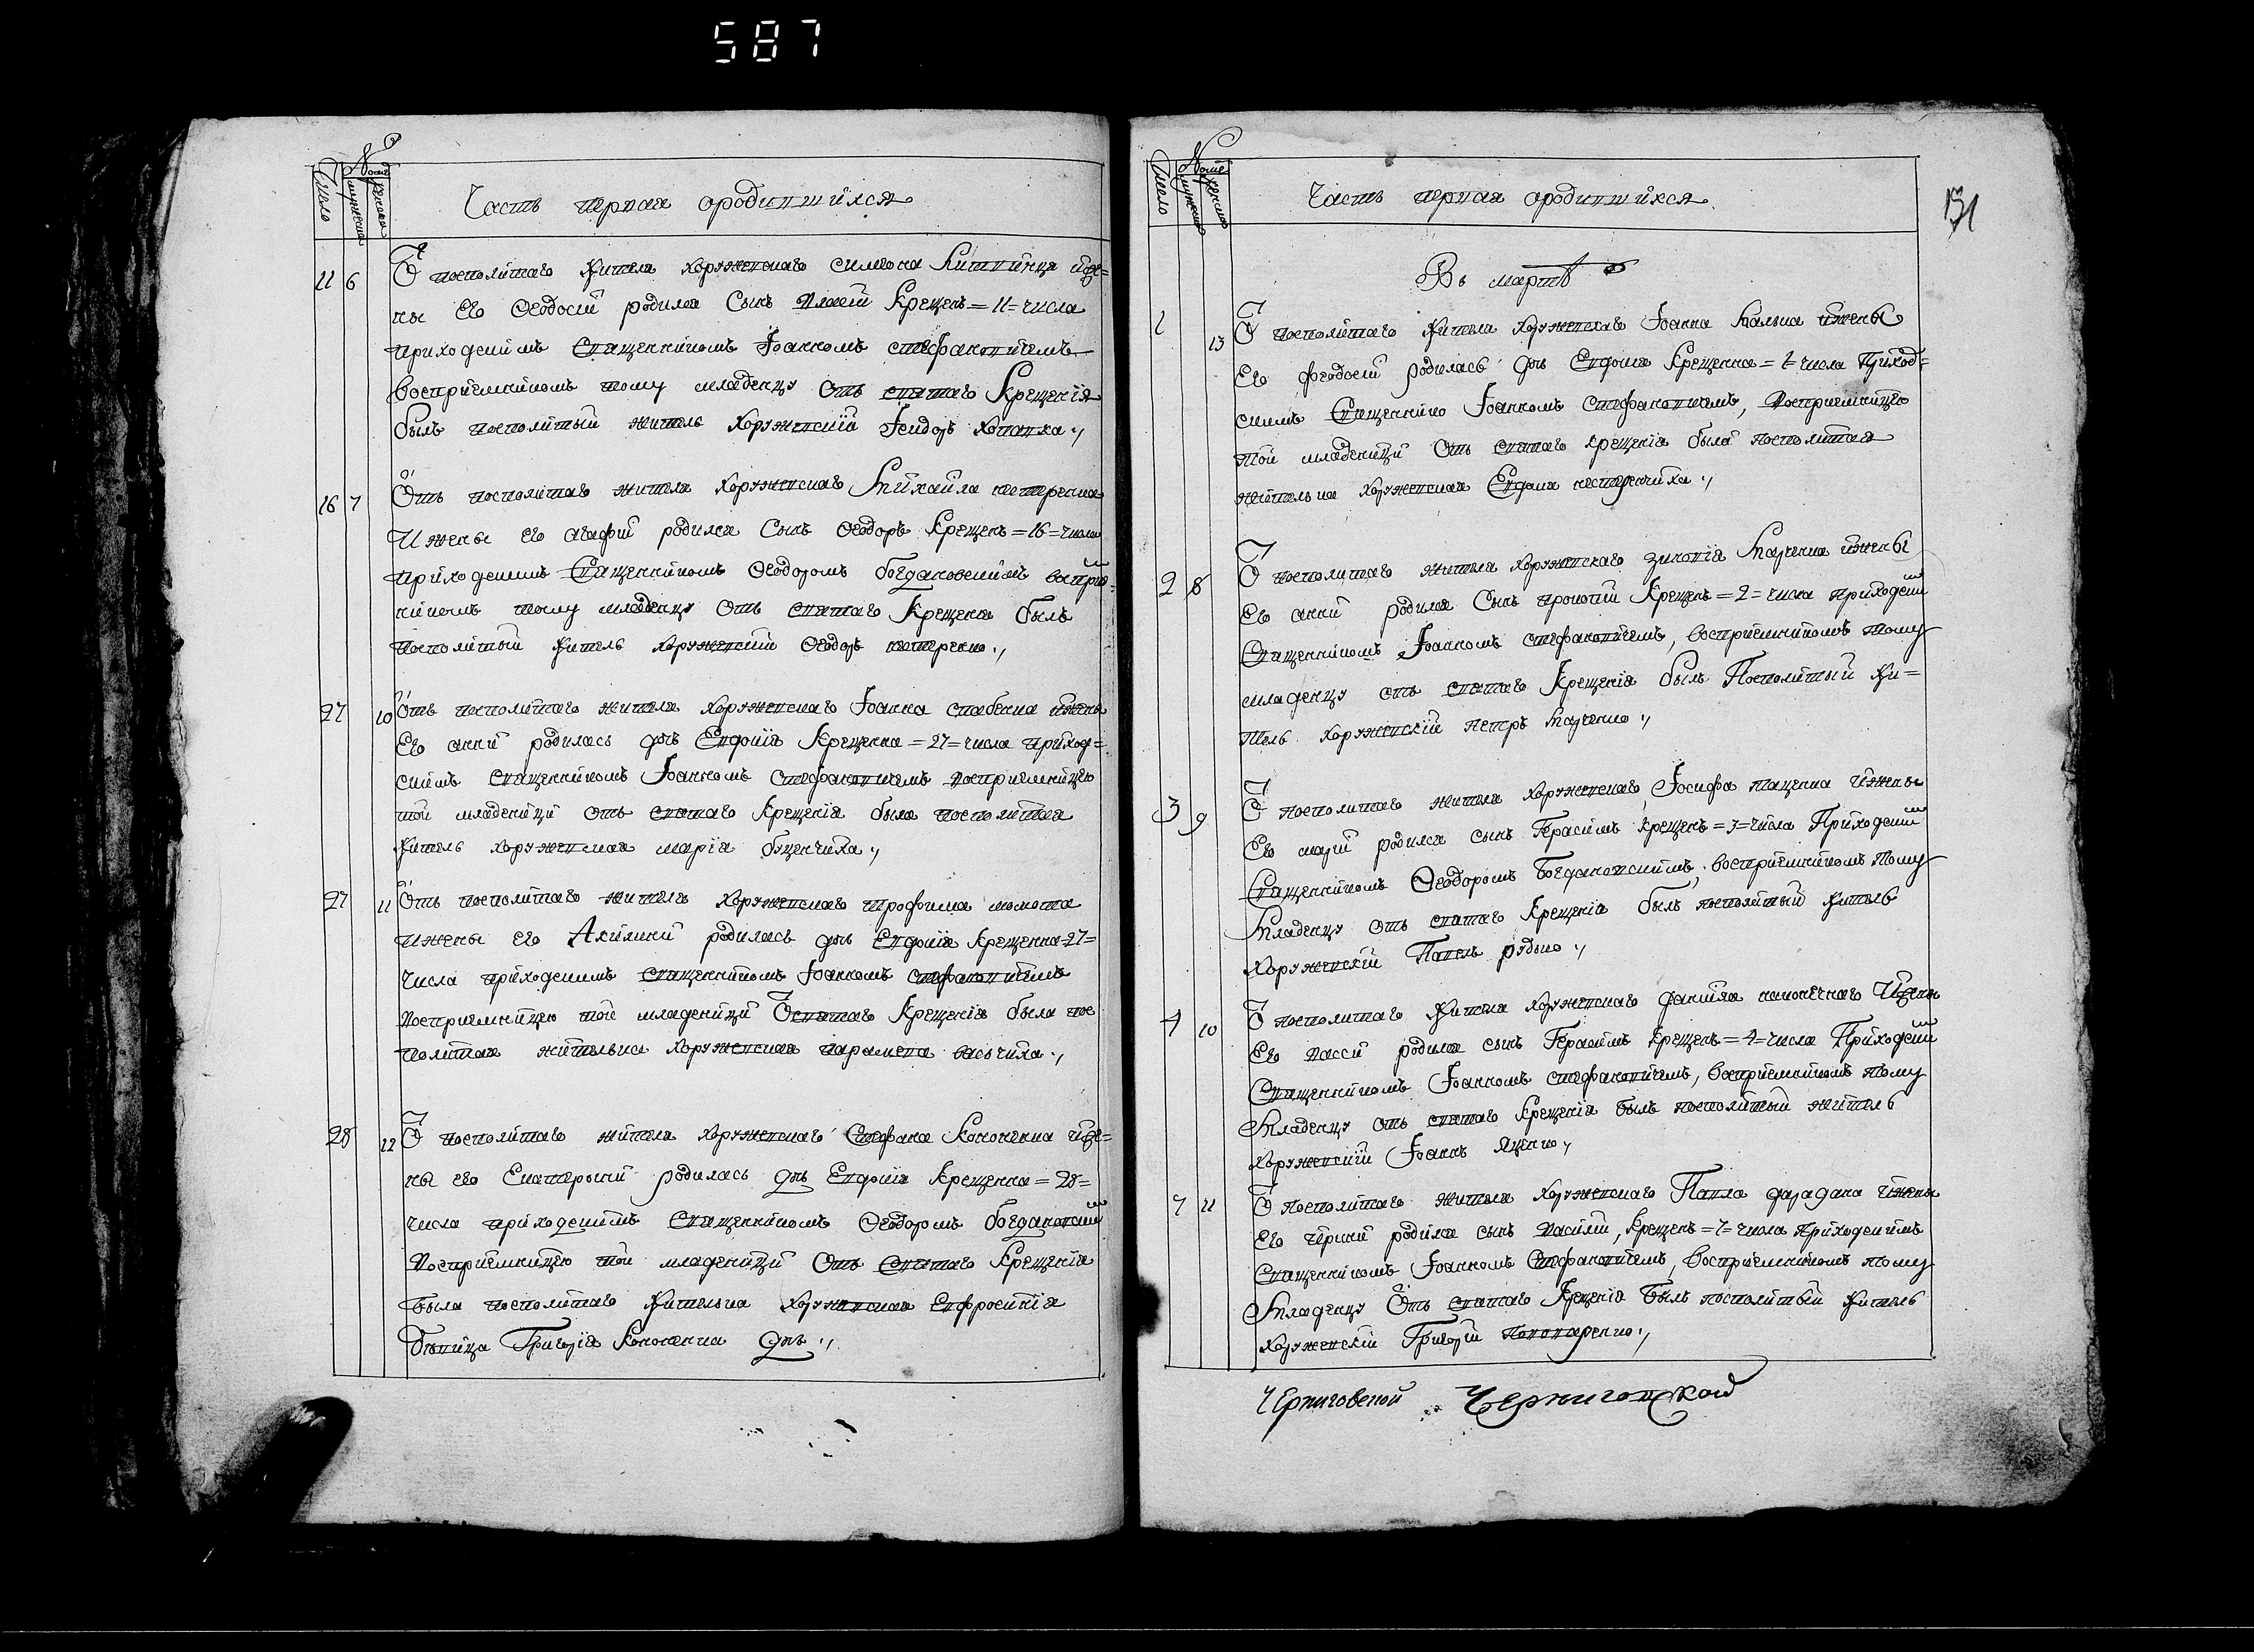 587
Число № мужеска женска
Часть первая ородившихся
11 6 Ѿ посполитаго жителя хоружевскаго симеона Китвинца ижє=
ны Его Ѳеодосіи родился Сынъ Власій Крещенъ = 11 = числа
приходскимъ Священникомъ Іоанномъ стефановичемъ
воспріемникомъ тому младенцу отъ святаго Крещенія
былъ посполитый житель хоружевскій Ісидоръ
16 7 Отъ посполитаго жителя хоружевскаго Михаила нестеренка
И жены его агафіи родился Сынъ Ѳеодоръ Крещенъ = 16 = числа
приходскимъ Священникомъ Ѳеодоромъ богдановскимъ воспріе=
никомъ тому младенцу отъ святаго Крещенія былъ
посполитый житель хоружевскій Ѳеодоръ нестеренко
27 10 Отъ посполитаго жителя хоружевскаго Іоанна ижены
Его анны родилась дчь Евдокія Крещенна = 27 = числа приход=
скимъ священникомъ Іоанномъ Стефановичемъ воспріемницею
той младеницы отъ святаго Крещенія была посполитая
житель хоружевская марія буценчиха
27 11 Отъ посполитаго жителя хоружевскаго трофима
ижены его Акилины родилась дчь Евдокія Крещенна = 27 =
числа приходскимъ священникомъ Іоанномъ стефановичемъ
воспріемницею той младеницы Ѿ святаго Крещенія была пос
политая жителька хоружевская
28 12 Ѿ посполитаго жителя хоружевскаго Стефана Кононенка ижє=
ны его Екатерины родилась дчь Евдокія Крещенна = 28 =
числа приходскимъ священникомъ Ѳеодоромъ богдановским
воспріемницею той младеницы отъ Святаго Крещенія
была посполитаго жителька хоружевская Евфросинія
дѣвица Григорія Кононенка дчь
Число № мужеска женска
Часть первая ородившихся
131
Въ мартѣ
1 13 Ѿ посполитаго жителя хоружевскаго Іоанна ижены
Его феодосіи родилась дчь Евдокія Крещенна = 1 = числа Приход=
скимъ Священнико Іоанномъ Стефановичемъ, воспріемницею
той младеницы отъ святаго крещенія была посполитая
жителька хоружевская Евдокія нестеренчиха
2 8 Ѿ посполитаго жителя хоружевскаго зиновія Марченка ижены
Его анны родился Сынъ прокопій Крещенъ = 2 = числа приходским
Священникомъ Іоанномъ стефановичемъ, воспріемникомъ тому
младенцу отъ святаго Крещенія былъ Посполитый жи=
тель хоружевскій Петръ Марченко
3 9 Ѿ посполитаго жителя хоружевскаго, Іосифа таценка ижены
Его маріи родился сынъ Герасимъ крещенъ = 3 = числа Приходским
Священникомъ Ѳеодоромъ Богдановскимъ, воспріемникомъ тому
Младенцу отъ святаго Крещенія былъ посполитый житель
Хоружевскій Павелъ рудько
4 10 Ѿ посполитаго жителя хоружевскаго даніила Ижены
Его вассы родился сынъ Герасимъ крещенъ = 4 = числа Приходским
Священникомъ Іоанномъ стефановичемъ, воспріемникомъ тому
Младенцу отъ святаго Крещенія былъ посполитый житель
Хоружевскій Іоаннъ яценко
7 11 Ѿ посполитаго жителя хоружевскаго Павла ижены
Его ирины родился сынъ василій, Крещенъ = 7 = числа приходскимъ
Священникомъ Іоанномъ Стефановичемъ, воспріемникомъ тому
Младенцу Отъ святаго Крещенія былъ посполитый житель
хоружевскій Григорій
Черниговской Черниговской